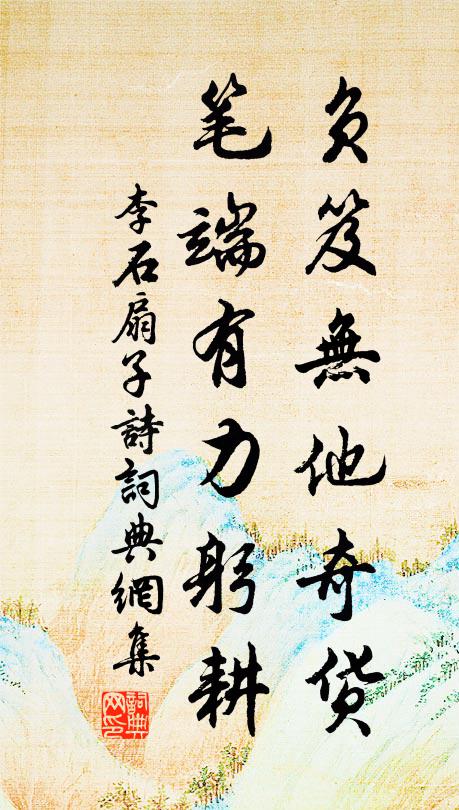 负笈無他奇货
笔端有力躬耕
李石扇子詩詞典網集
詞典网印